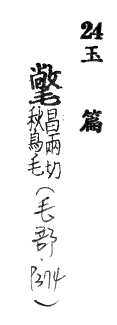 24
玉篇
氅昌兩切
秋鳥毛
(毛部·P374)